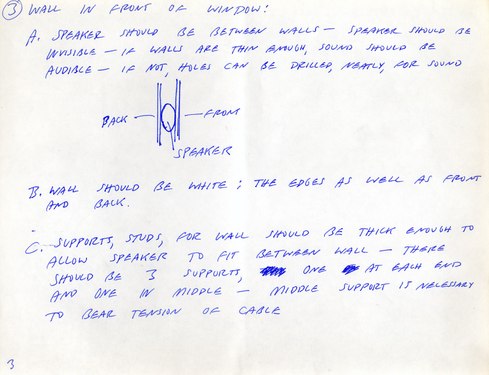 3 WALL IN FRONT OF WINDOW:
A. SPEAKER SHOULD BE BETWEEN WALLS — SPEAKER SHOULD BE
INVISIBLE — IF WALLS ARE THIN ENOUGH, SOUND SHOULD BE
AUDIBLE — IF NOT, HOLES CAN BE DRILLED, NEATLY, FOR SOUND
BACK — — FRONT
SPEAKER
B. WALL SHOULD BE WHITE; THE EDGES AS WELL AS FRONT
AND BACK.
C. SUPPORTS, STUDS, FOR WALL SHOULD BE THICK ENOUGH TO
ALLOW SPEAKER TO FIT BETWEEN WALL — THERE
SHOULD BE 3 SUPPORTS, ONE AT EACH END
AND ONE IN MIDDLE — MIDDLE SUPPORT IS NECESSARY
TO BEAR TENSION OF CABLE
3